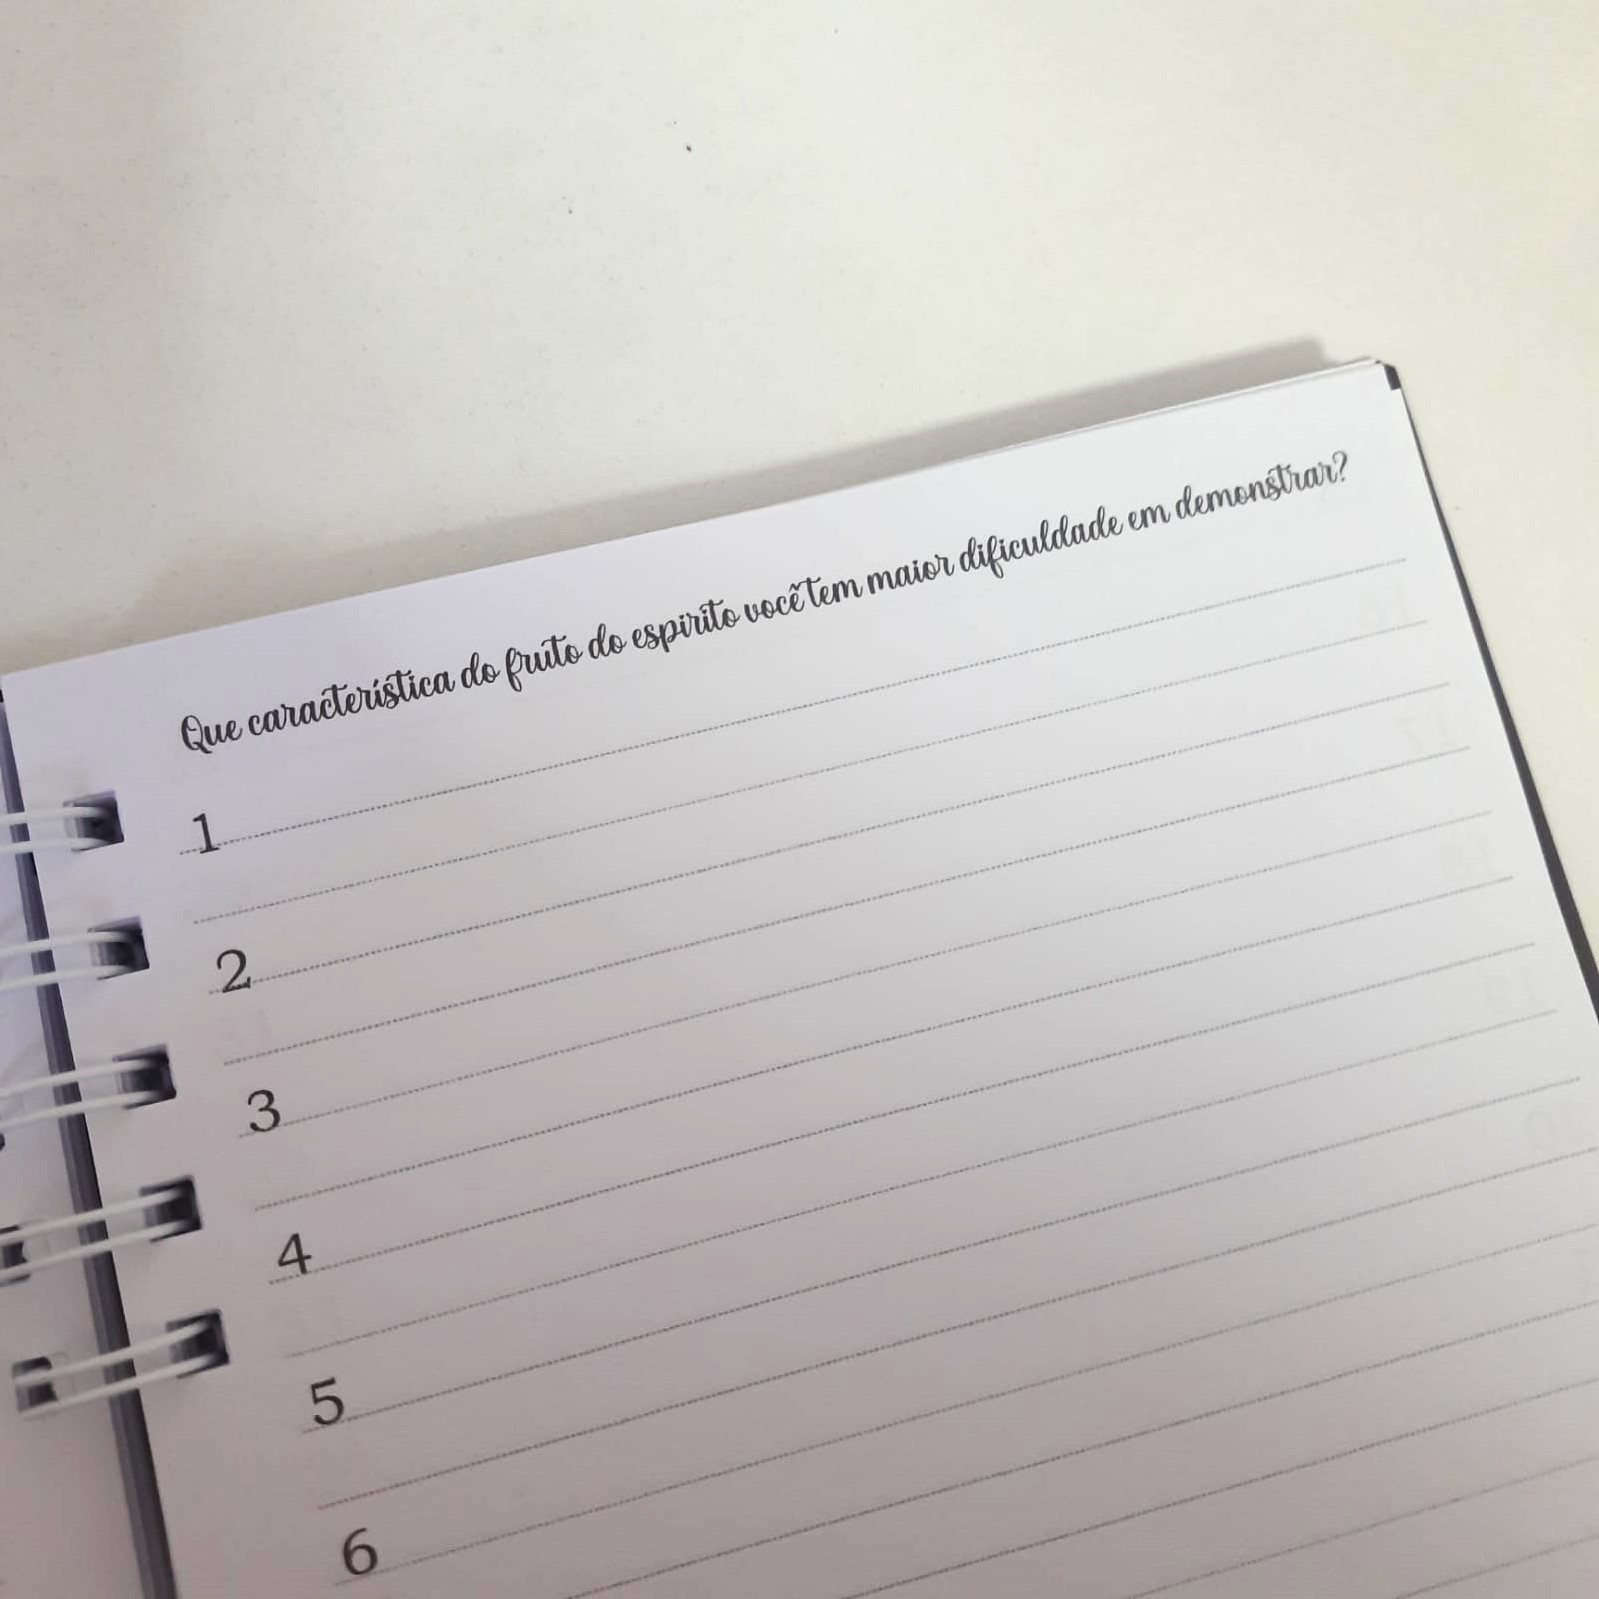 Que característica do fruto do espirito você tem maior dificuldade em demonstrar?
1
2
3
4
5
6